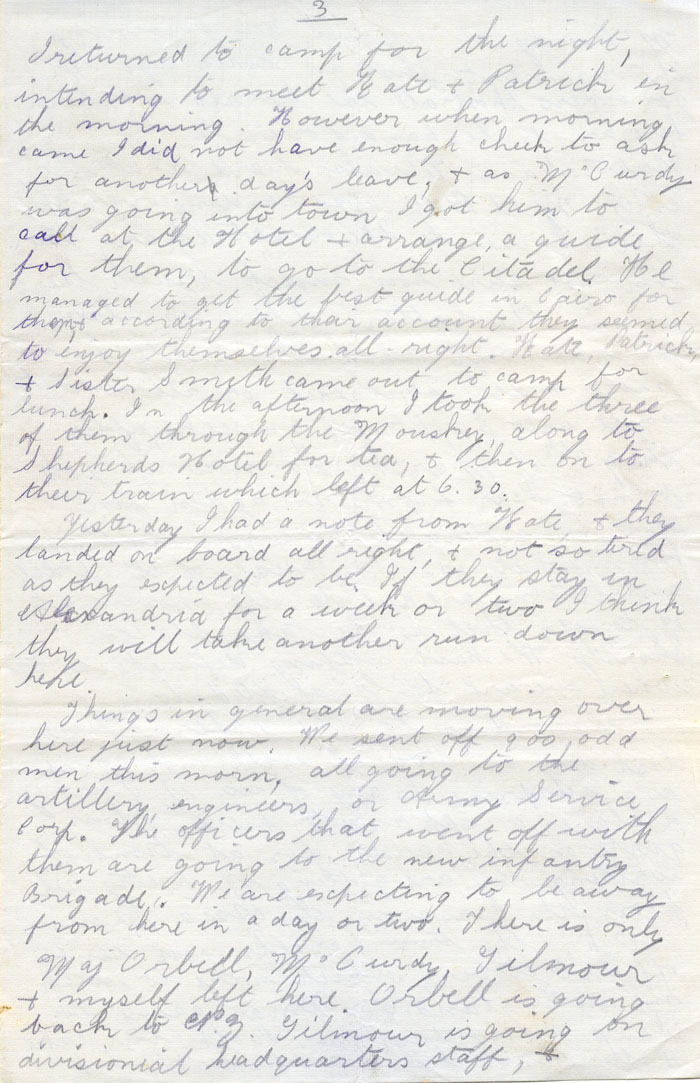 3
I returned to camp for the night,
intending to meet Kate + Patrick in
the morning. However when morning
came I did not have enough cheek to ask
for another day's leave, + as McCurdy
was going into town I got him to
call at the Hotel + arrange, a guide
for them, to go to the Citadel. He
managed to get the best guide in Cairo for
them + according to their account they seemed
to enjoy themselves all right. Kate, Patrick,
+ Sister Smith came out to camp for
lunch. In the afternoon I took the three
of them through the Mouskey, along to
Shepherds Hotel for tea, + then on to
their train which left at 6.30.
Yesterday I had a note from Kate, + they
landed on board all right, + not so tired
as they expected to be. If they stay in
Alexandria for a week or two I think
they will take another run down
here.
Things in general are moving over
here just now. We sent off 900 odd
men this morn, all going to the
artillery, engineers, or Army Service
Corp. The officers that went off with
them are going to the new infantry
Brigade. We are expecting to be away
from here in a day or two. There is only
Maj Orbell, McCurdy, Gilmour
+ myself left here. Orbell is going
back to N.Z. Gilmour is going on
divisionial headquarters staff, +